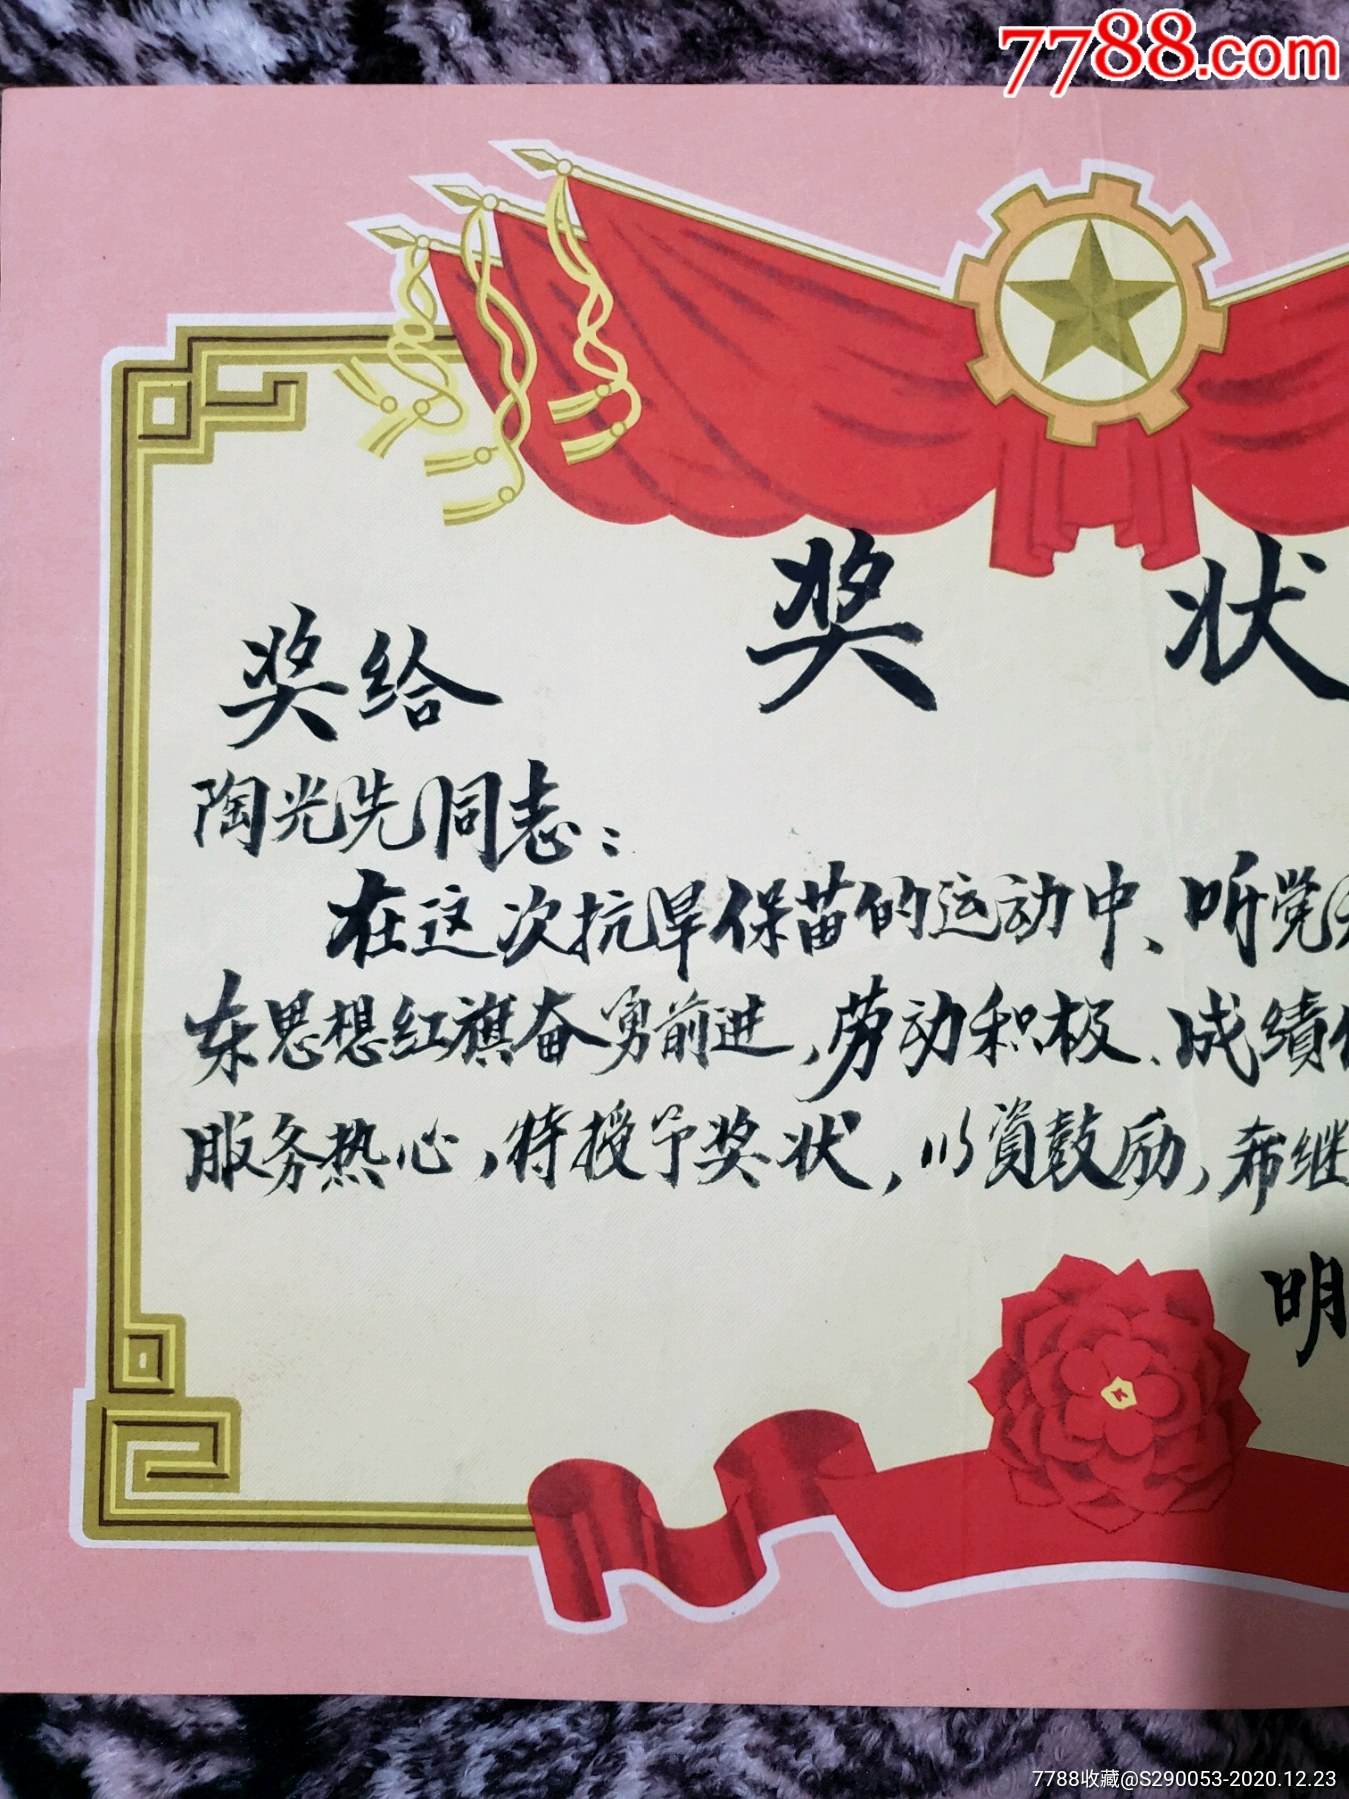 7788.com
奖状
奖给
陶光先同志：
在这次抗旱保苗的运动中、听党
东思想红旗奋勇前进，劳动积极、成绩
服务热心，特授予奖状，以资鼓励，希继
明
7788收藏@S290053-2020.12.23